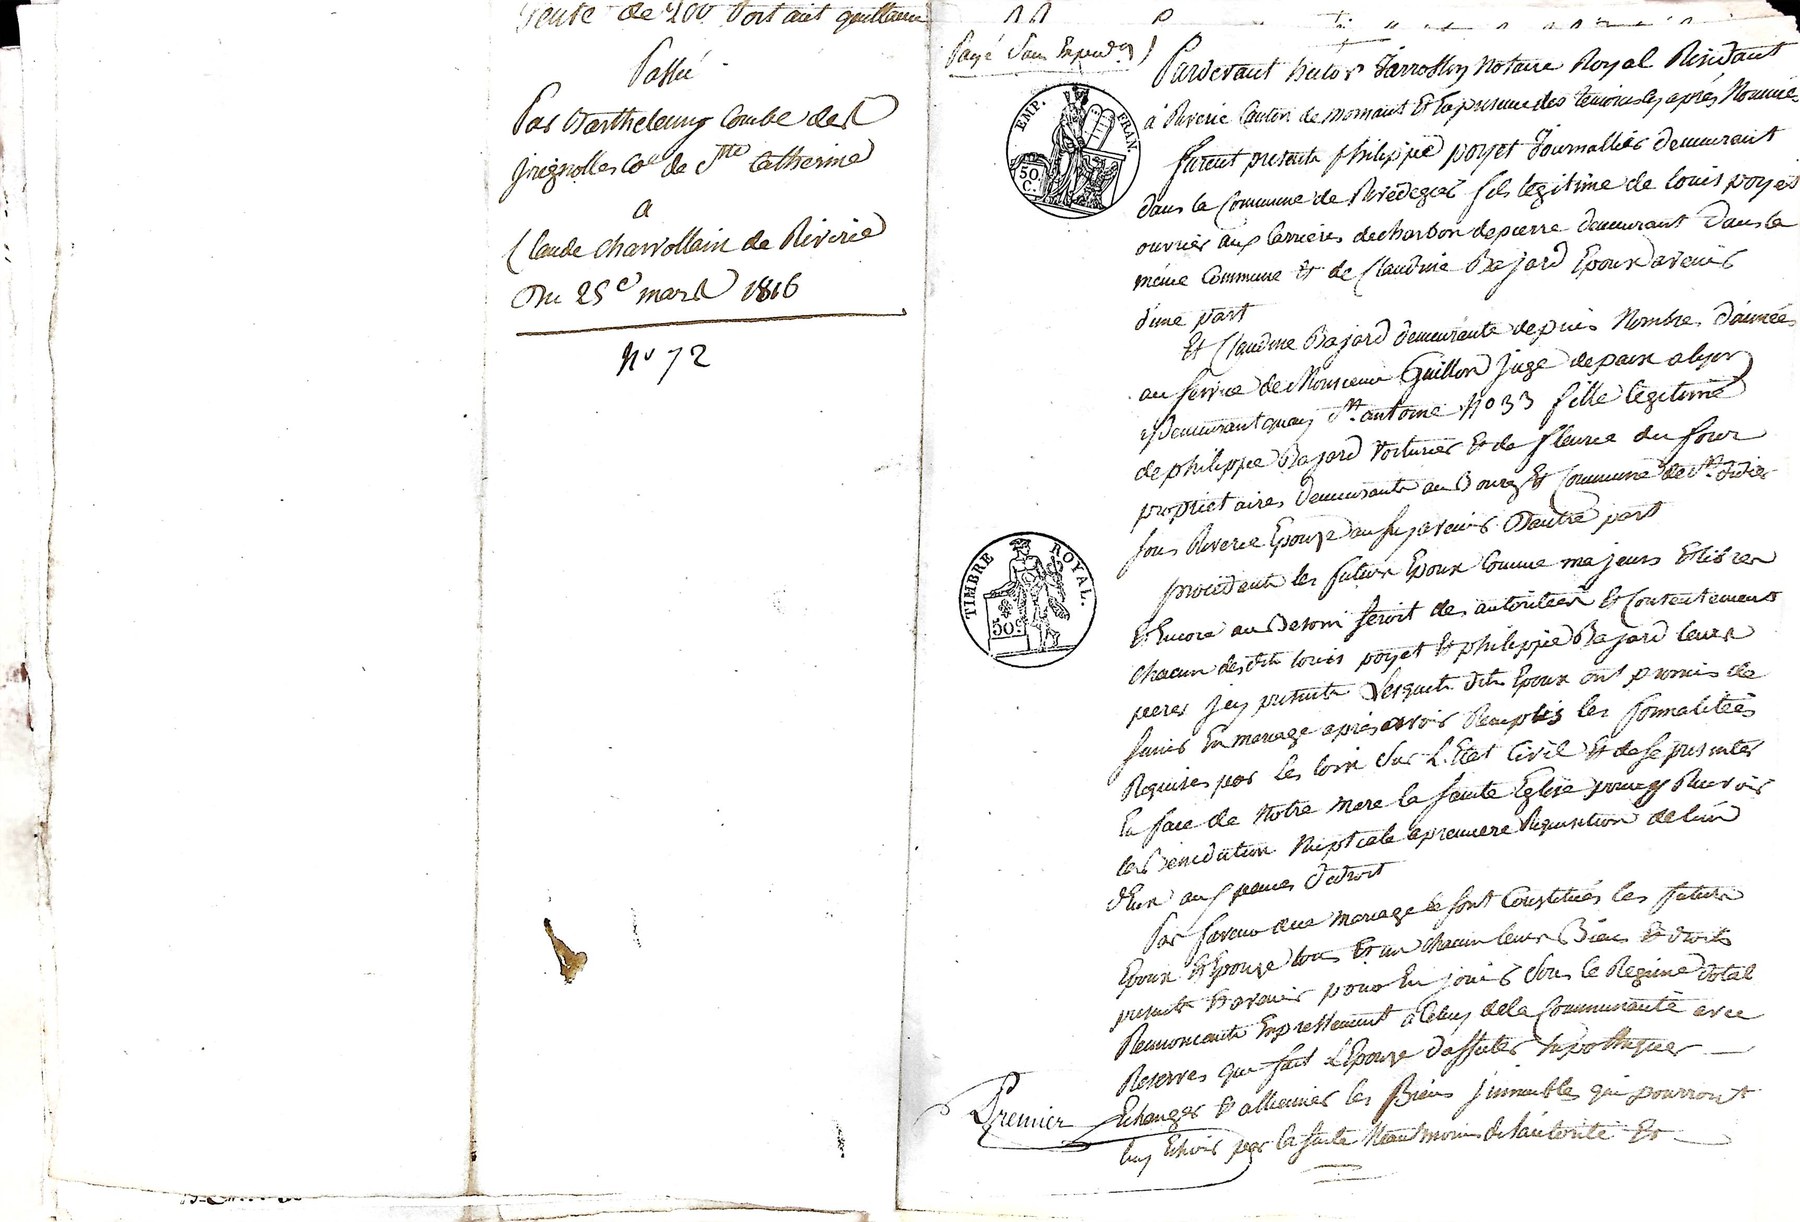 Vente de 200 portant quittance
Passée
Par Barthelemy Combe des
jrignolles Cne de Ste Catherine
a
Claude charvollain de Riverie
Du 25e mars 1816
No 72
Payé Sans
Pardevant hector Notaire Royal Résidant
à Riverie Canton de mornant Et En presence des temoins cy après Nommés
furent presents philippe poyet Journallier demeurant
dans la Commune de Rivedegier fils légitime de louis poyet
ouvrier aux Carrieres de charbon de pierre demeurant Dans la
même Commune et de Claudine Bajard Epoux avenir
d'une part
Et Claudine Bajard demeurante depuis Nombre d'année
au service de Monsieur Guillon juge de paix a lyon
y Demeurant quay St antoine No 33 fille légitime
de philippe Bajard voiturier Et de fleurie du four
proprietaires demeurants au Bourg Et Commune de St Didier
sous Riverie Epouze au ssy avenir D'autre part
procédents les futurs Epoux Comme majeurs Et libres
Et Encore au Besoin seroit des autorités Et Consentement
chacun desdits louis poyet Et philippe Bajard leurs
peres jcy presents lesquels dits Epoux ont promis de
sunir En mariage après avoir Remplis les formalitées
Requises par les loix sur L'Etat Civil Et de se presenter
En face de Notre mere la sainte Eglise pour y Recevoir
la Bénédiction Nuptiale a premiere Requisition de l'un
d'Eux aux peines de droit
Par faveur du mariage se sont Constitués les futurs
Epoux Et Epouze tous Et un chacun leurs Biens Et droits
presents Et avenir pour En jouir sous le Regime dotal
Renoncents Expressement à Celuy de la Communauté avec
Reserves que fait L'Epouze d'affecter hypothequer
Echanger Et allienier les Biens jmmeubles qui pourront
luy Echoir par la suite Neantmoins de l'autorité Et
Premier
EMP. FRAN.
50 C.
TIMBRE ROYAL.
50 c